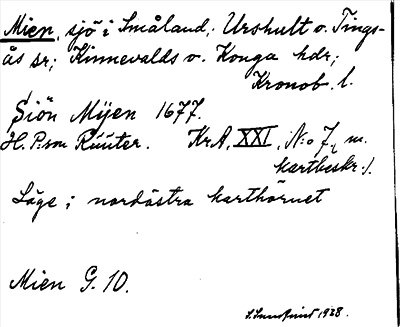 Mien, sjö i Småland, Urshult o. Tings-
ås sr; Kinnevalds o. Konga hdr;
Kronob. l.
Siön Mijen 1677.
H. P:son Ruuter. Kr A, XXI, N:o 7, m.
kartbeskr.).
Läge i nordöstra karthörnet
Mien G. 10.
1928.